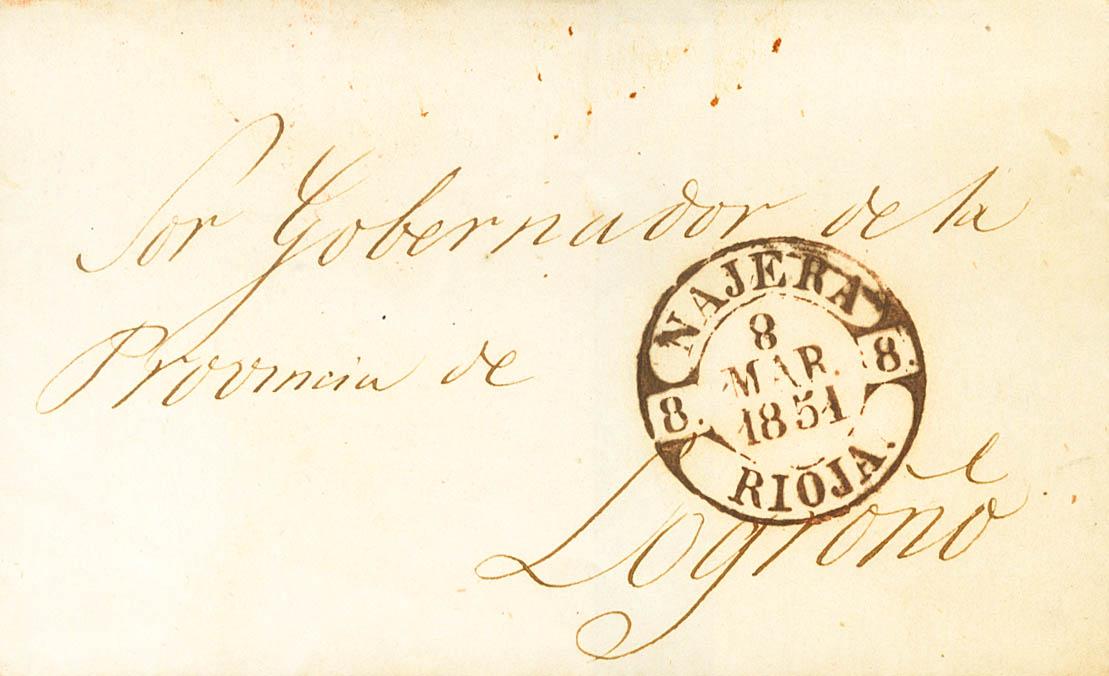 Sor Gobernador de la
Provincia de
Logroño
NAJERA
8
MAR.
1851
8.
8.
RIOJA.